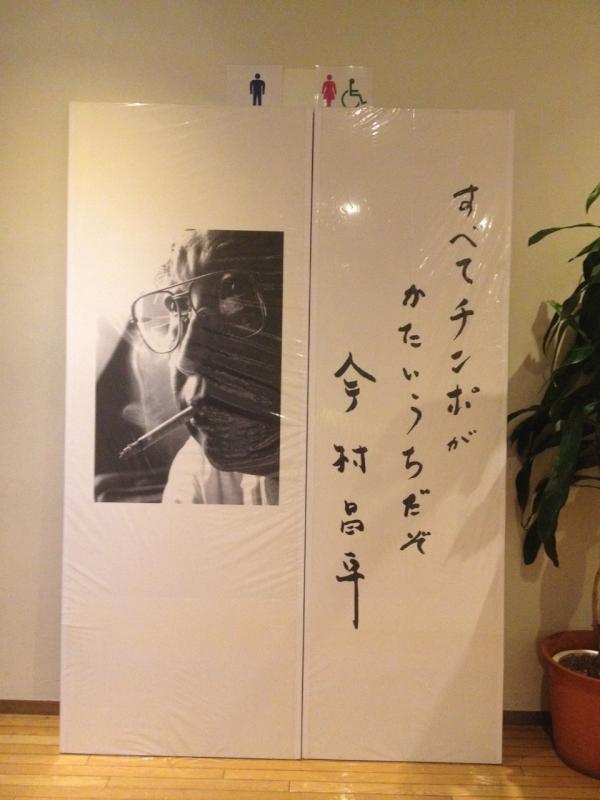 すべてチンポが
かたいうちだぞ
今村昌平